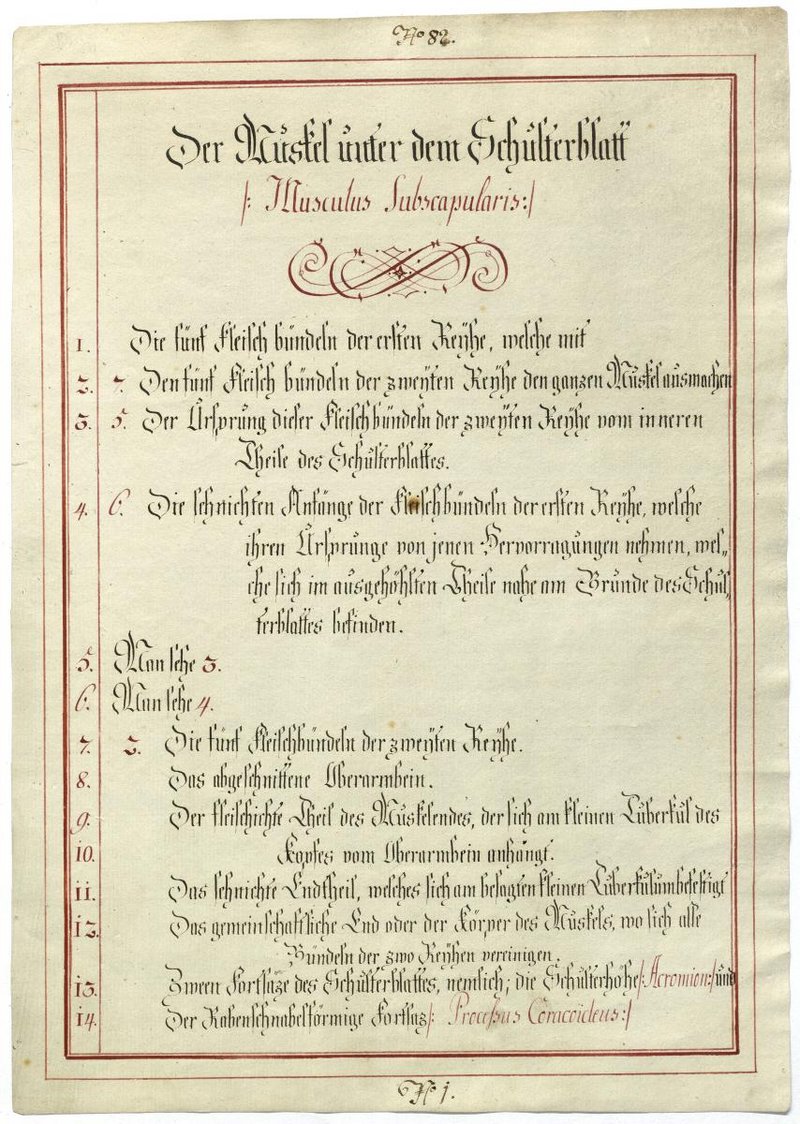 No 82.
Der Muskel unter dem Schulterblatt
/: Musculus Subscapularis:/
1. Die fünf Fleisch bündeln der ersten Reÿhe, welche mit
2. 7. Den fünf Fleisch bündeln der zweÿten Reÿhe den ganzen Muskel ausmachen
3. 5. Der Ursprung dieser Fleischbündeln der zweÿten Reÿhe vom inneren
Theile des Schulterblattes.
4. 6. Die sehnichten Anfänge der Fleischbündeln der ersten Reÿhe, welche
ihren Ursprunge von jenen Hervorragungen nehmen, wel„
che sich im ausgehöhlten Theile nahe am Grunde des Schul„
terblattes befinden.
5. Man sehe 3.
6. Man sehe 4.
7. 2. Die fünf Fleischbündeln der zweÿten Reÿhe.
8. Das abgeschnittene Oberarmbein.
9. Der fleischichte Theil des Muskelendes, der sich am kleinen Tuberkul des
10. Kopfes vom Oberarmbein anhängt.
11. Das sehnichte Endtheil, welches sich am besagten kleinen Tuberkulum befestigt
12. Das gemeinschaftliche End oder der Körper des Muskels, wo sich alle
Bündeln der zwo Reÿhen vereinigen.
13. Zween Fortsäze des Schulterblattes, nemlich; die Schulterhöhe /:Acromion:/ und
14. Der Rabenschnabelförmige Fortsaz /: Processus Coracoideus:/
No 1.